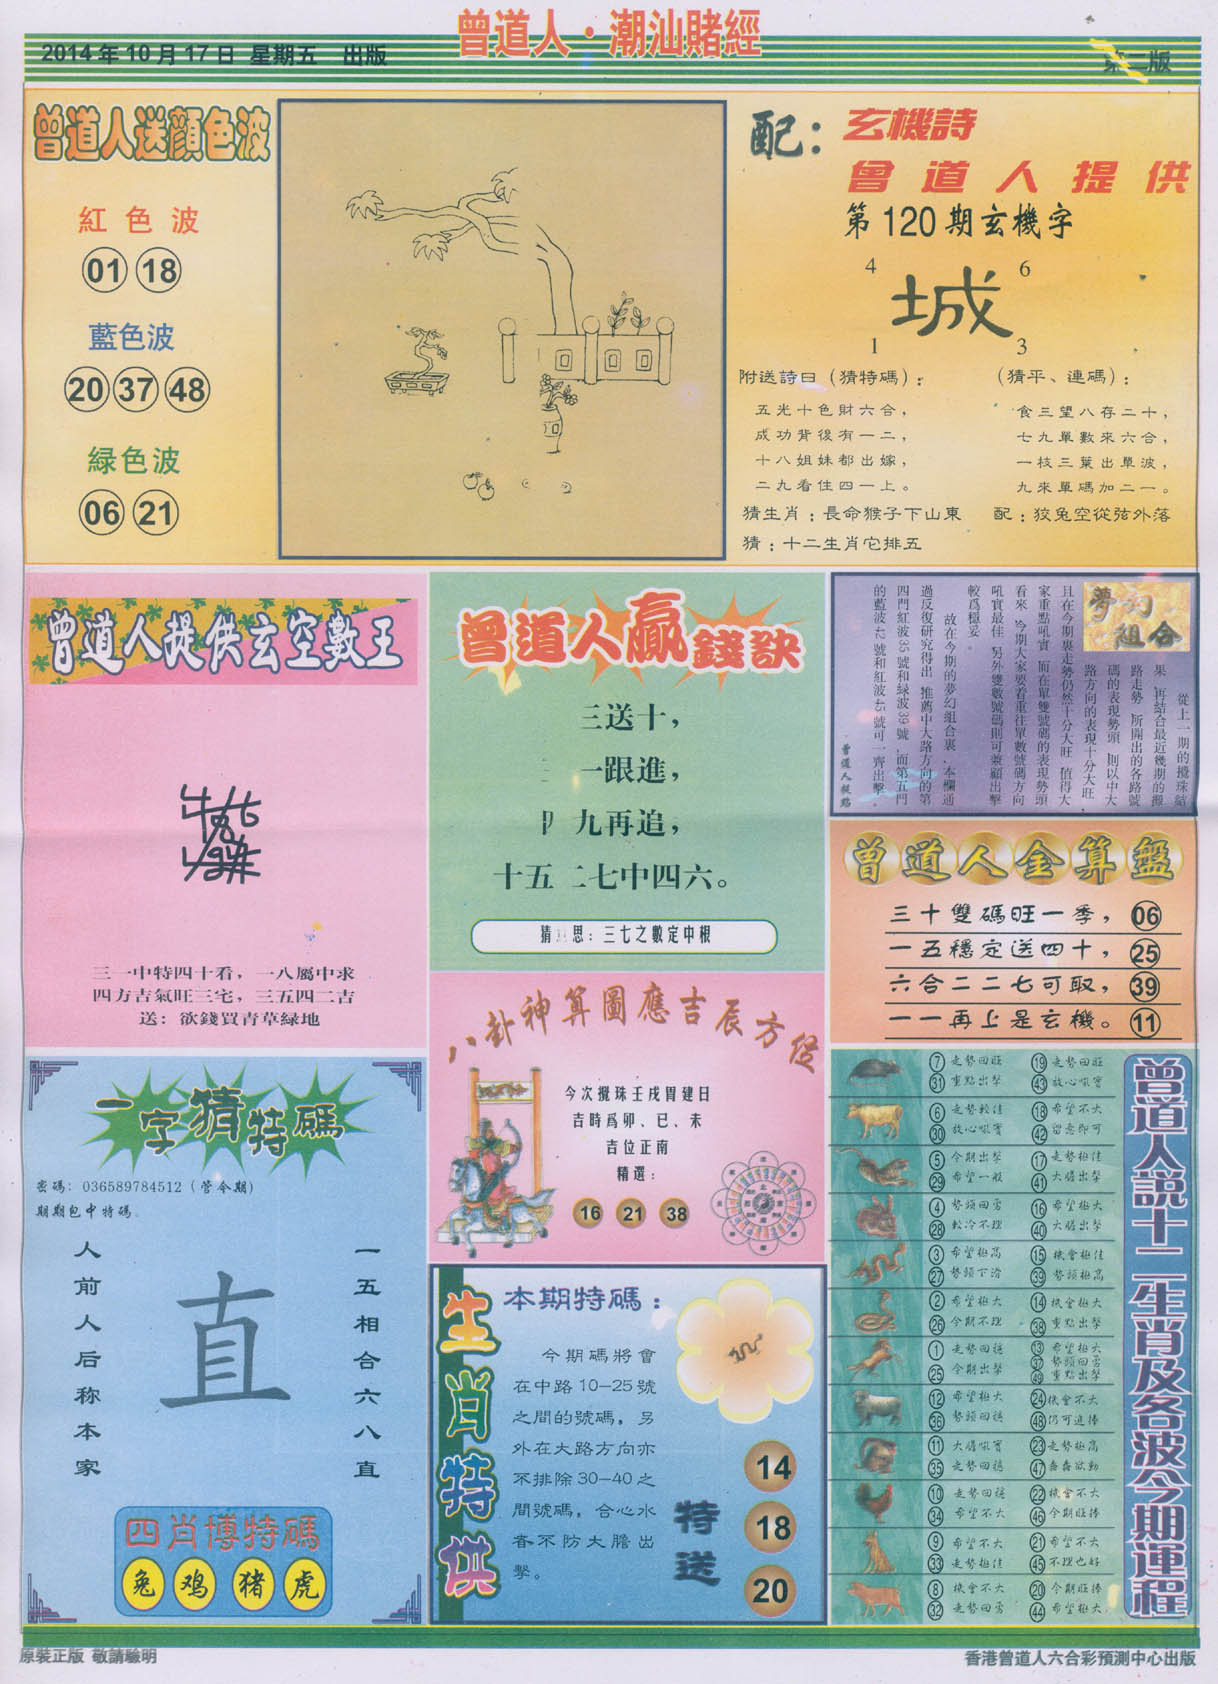 曾道人·潮汕賭經
2014年10月17日 星期五 出版
第二版
曾道人送顔色波
紅色波
01 18
藍色波
20 37 48
緑色波
06 21
配：
玄機詩
曾道人提供
第120期玄機字
4 6
城
1 3
附送詩曰（猜特碼）：
五光十色財六合，
成功背後有一二，
十八姐妹都出嫁，
二九看住四一上。
（猜平、連碼）：
食三望八存二十，
七九單數來六合，
一枝三葉出單波，
九來單碼加二一。
猜生肖：長命猴子下山東
配：狡兔空從弦外落
猜：十二生肖它排五
曾道人提供玄空數王
三一中特四十看，一八屬中求
四方吉氣旺三宅，三五四二吉
送：欲錢買青草緑地
曾道人贏錢訣
三送十，
一跟進，
九再追，
十五二七中四六。
猜意思：三七之數定中根
夢幻組合
從上一期的攪珠結
果，再結合最近幾期的攪
路走勢，所開出的各路號
碼的表現勢頭，則以中大
路方向的表現十分大旺，
且在今期裏走勢仍然十分大旺，值得大
家重點吼實，而在單雙號碼的表現勢頭
看來，今期大家要着重往單數號碼方向
吼實最佳，另外雙數號碼則可兼顧出擊
較爲穩妥。
故在今期的夢幻組合裏，本欄通
過反復研究得出，推薦中大路方向的第
四門紅波35號和緑波39號，而第五門
的藍波42號和紅波45號可一齊出擊。
曾道人金算盤
三十雙碼旺一季，06
一五穩定送四十，25
六合二二七可取，39
一一再上是玄機。11
八卦神算圖應吉辰方位
今次攪珠壬戌胃建日
吉時爲卯、巳、未
吉位正南
精選：
16 21 38
一字猜特碼
密碼：036589784512（管今期）
期期包中特碼
人前人后称本家
直
一五相合六八直
四肖博特碼
兔 鸡 猪 虎
生肖特供
本期特碼：
今期碼將會
在中路10—25號
之間的號碼，另
外在大路方向亦
不排除30—40之
間號碼，合心水
者不防大膽出
擊。
特送
14
18
20
曾道人説十二生肖及各波今期運程
7 走勢回旺 19 走勢回旺
31 重點出擊 43 放心吼實
6 走勢較佳 18 希望不大
30 放心吼實 42 留意即可
5 今期出擊 17 走勢極佳
29 希望一般 41 大膽出擊
4 勢頭回勇 16 希望不大
28 較冷不理 40 大膽出擊
3 希望極高 15 機會極佳
27 勢頭下滑 39 勢頭極高
2 希望極大 14 機會極大
26 今期不理 38 重點出擊
1 走勢回穩 13 希望極大
37 勢頭回勇
25 今期出擊 49 重點出擊
12 希望極大 24 機會不大
36 勢頭回穩 48 仍可追捧
11 大膽吼實 23 走勢極高
35 走勢回穩 47 蠢蠢欲動
10 走勢回穩 22 機會不大
34 希望不大 46 今期旺捧
9 希望不大 21 希望不大
33 走勢極佳 45 不理也好
8 機會不大 20 今期旺捧
32 走勢回勇 44 希望極大
原裝正版 敬請驗明
香港曾道人六合彩預測中心出版